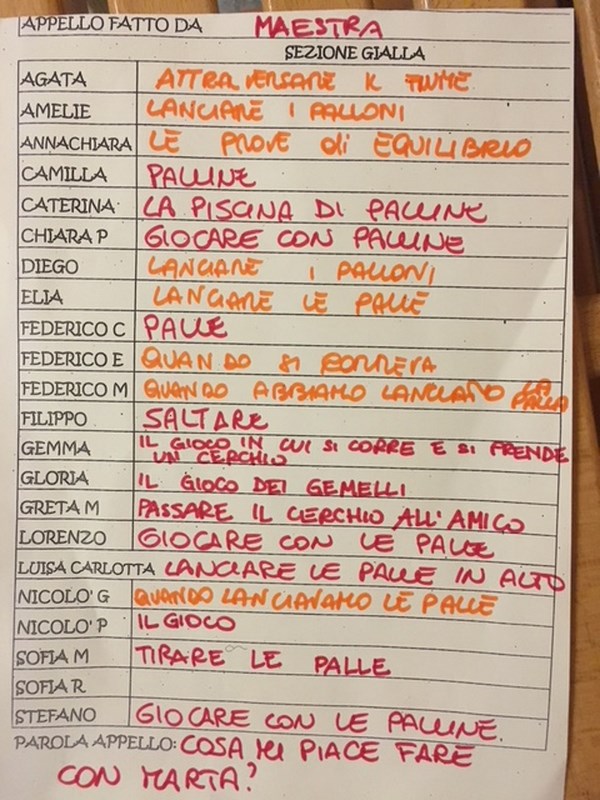 APPELLO FATTO DA MAESTRA
SEZIONE GIALLA
AGATA ATTRAVERSARE IL FIUME
AMELIE LANCIARE I PALLONI
ANNACHIARA LE PROVE di EQUILIBRIO
CAMILLA PALLINE
CATERINA LA PISCINA DI PALLINE
CHIARA P GIOCARE CON PALLINE
DIEGO LANCIARE I PALLONI
ELIA LANCIARE LE PALLE
FEDERICO C PALLE
FEDERICO E QUANDO SI CORREVA
FEDERICO M QUANDO ABBIAMO LANCIATO LA PALLA
FILIPPO SALTARE
GEMMA IL GIOCO IN CUI SI CORRE E SI PRENDE
UN CERCHIO
GLORIA IL GIOCO DEI GEMELLI
GRETA M PASSARE IL CERCHIO ALL'AMICO
LORENZO GIOCARE CON LE PALLE
LUISA CARLOTTA LANCIARE LE PALLE IN ALTO
NICOLO' G QUANDO LANCIAVAMO LE PALLE
NICOLO' P IL GIOCO
SOFIA M TIRARE LE PALLE
SOFIA R
STEFANO GIOCARE CON LE PALLINE.
PAROLA APPELLO: COSA MI PIACE FARE
CON MARTA?